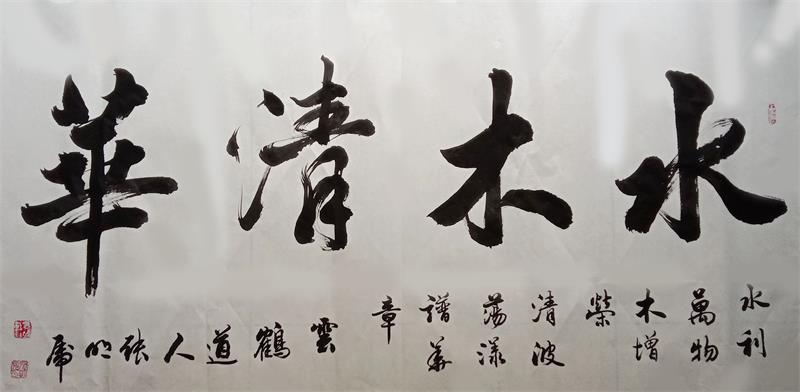 水木清華
水利
萬物
木增
榮
清波
蕩漾
譜華
章
雲鶴道人張